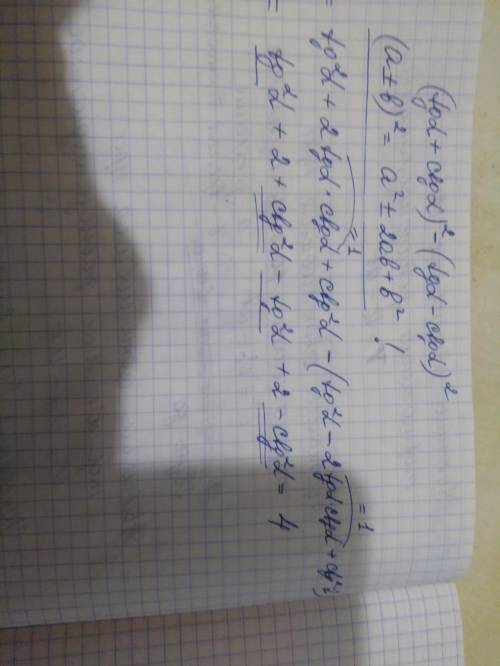 (tgα + ctgα)² - (tgα - ctgα)²
(a ± b)² = a² ± 2ab + b² !
= tg²α + 2 tgα · ctgα + ctg²α - (tg²α - 2 tgα ctgα + ctg²α)
=1 =1
= tg²α + 2 + ctg²α - tg²α + 2 - ctg²α = 4